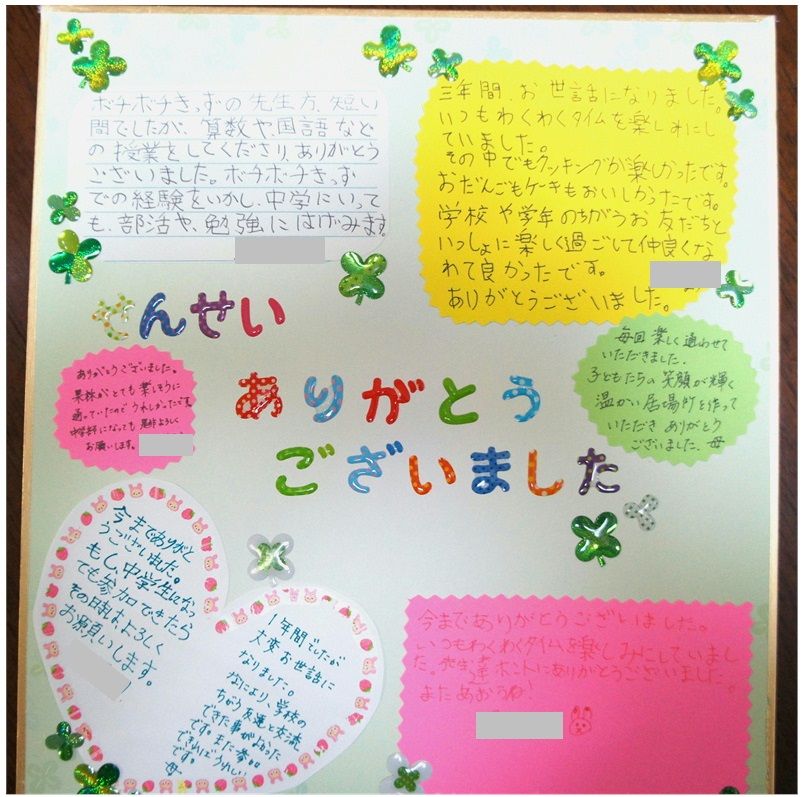 ボチボチきっずの先生方、短い
間でしたが、算数や国語など
の授業をしてくださり、ありがとう
ございました。ボチボチきっず
での経験をいかし、中学にいって
も、部活や、勉強にはげみます。
三年間、お世話になりました。
いつもわくわくタイムを楽しみにし
ていました。
その中でもクッキングが楽しかったです。
おだんごもケーキもおいしかったです。
学校や学年のちがうお友だちと
いっしょに楽しく過ごして仲良くな
れて良かったです。
ありがとうございました。
せんせい
ありがとう
ございました
ありがとうございました。
がとても楽しそうに
通っていたのでうれしかったです。
中学部になっても是非よろしく
お願いします。
毎回楽しく通わせて
いただきました。
子どもたちの笑顔が輝く
温かい居場所を作って
いただきありがとう
ございました。母
今までありがと
うございました。
もし、中学生になっ
ても参加できたら
その時はよろしく
お願いします。
1年間でしたが
大変お世話に
なりました。
学校の
ちがう友達と交流
できた事がよかった
です。また参加
できればうれしい
です。母
今までありがとうございました。
いつもわくわくタイムを楽しみにしていまし
た。先生達ホントにありがとうございました。
またあおうね!